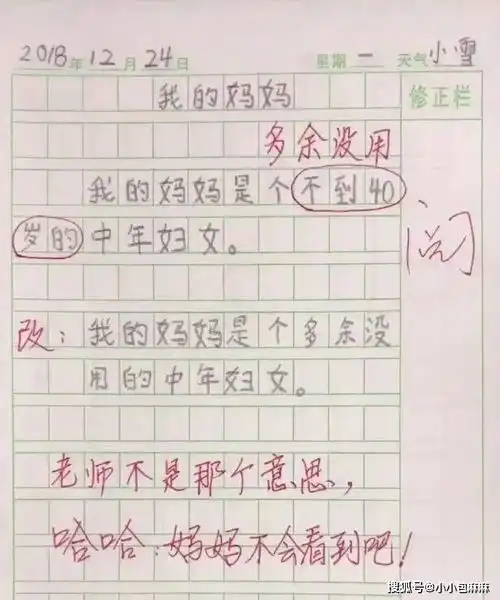 2018年12月24日 星期一 天气小雪
我的妈妈
修正栏
多余没用
我的妈妈是个不到40
岁的中年妇女。
阅
改：我的妈妈是个多余没
用的中年妇女。
老师不是那个意思，
哈哈：妈妈不会看到吧！
搜狐号@小小包麻麻